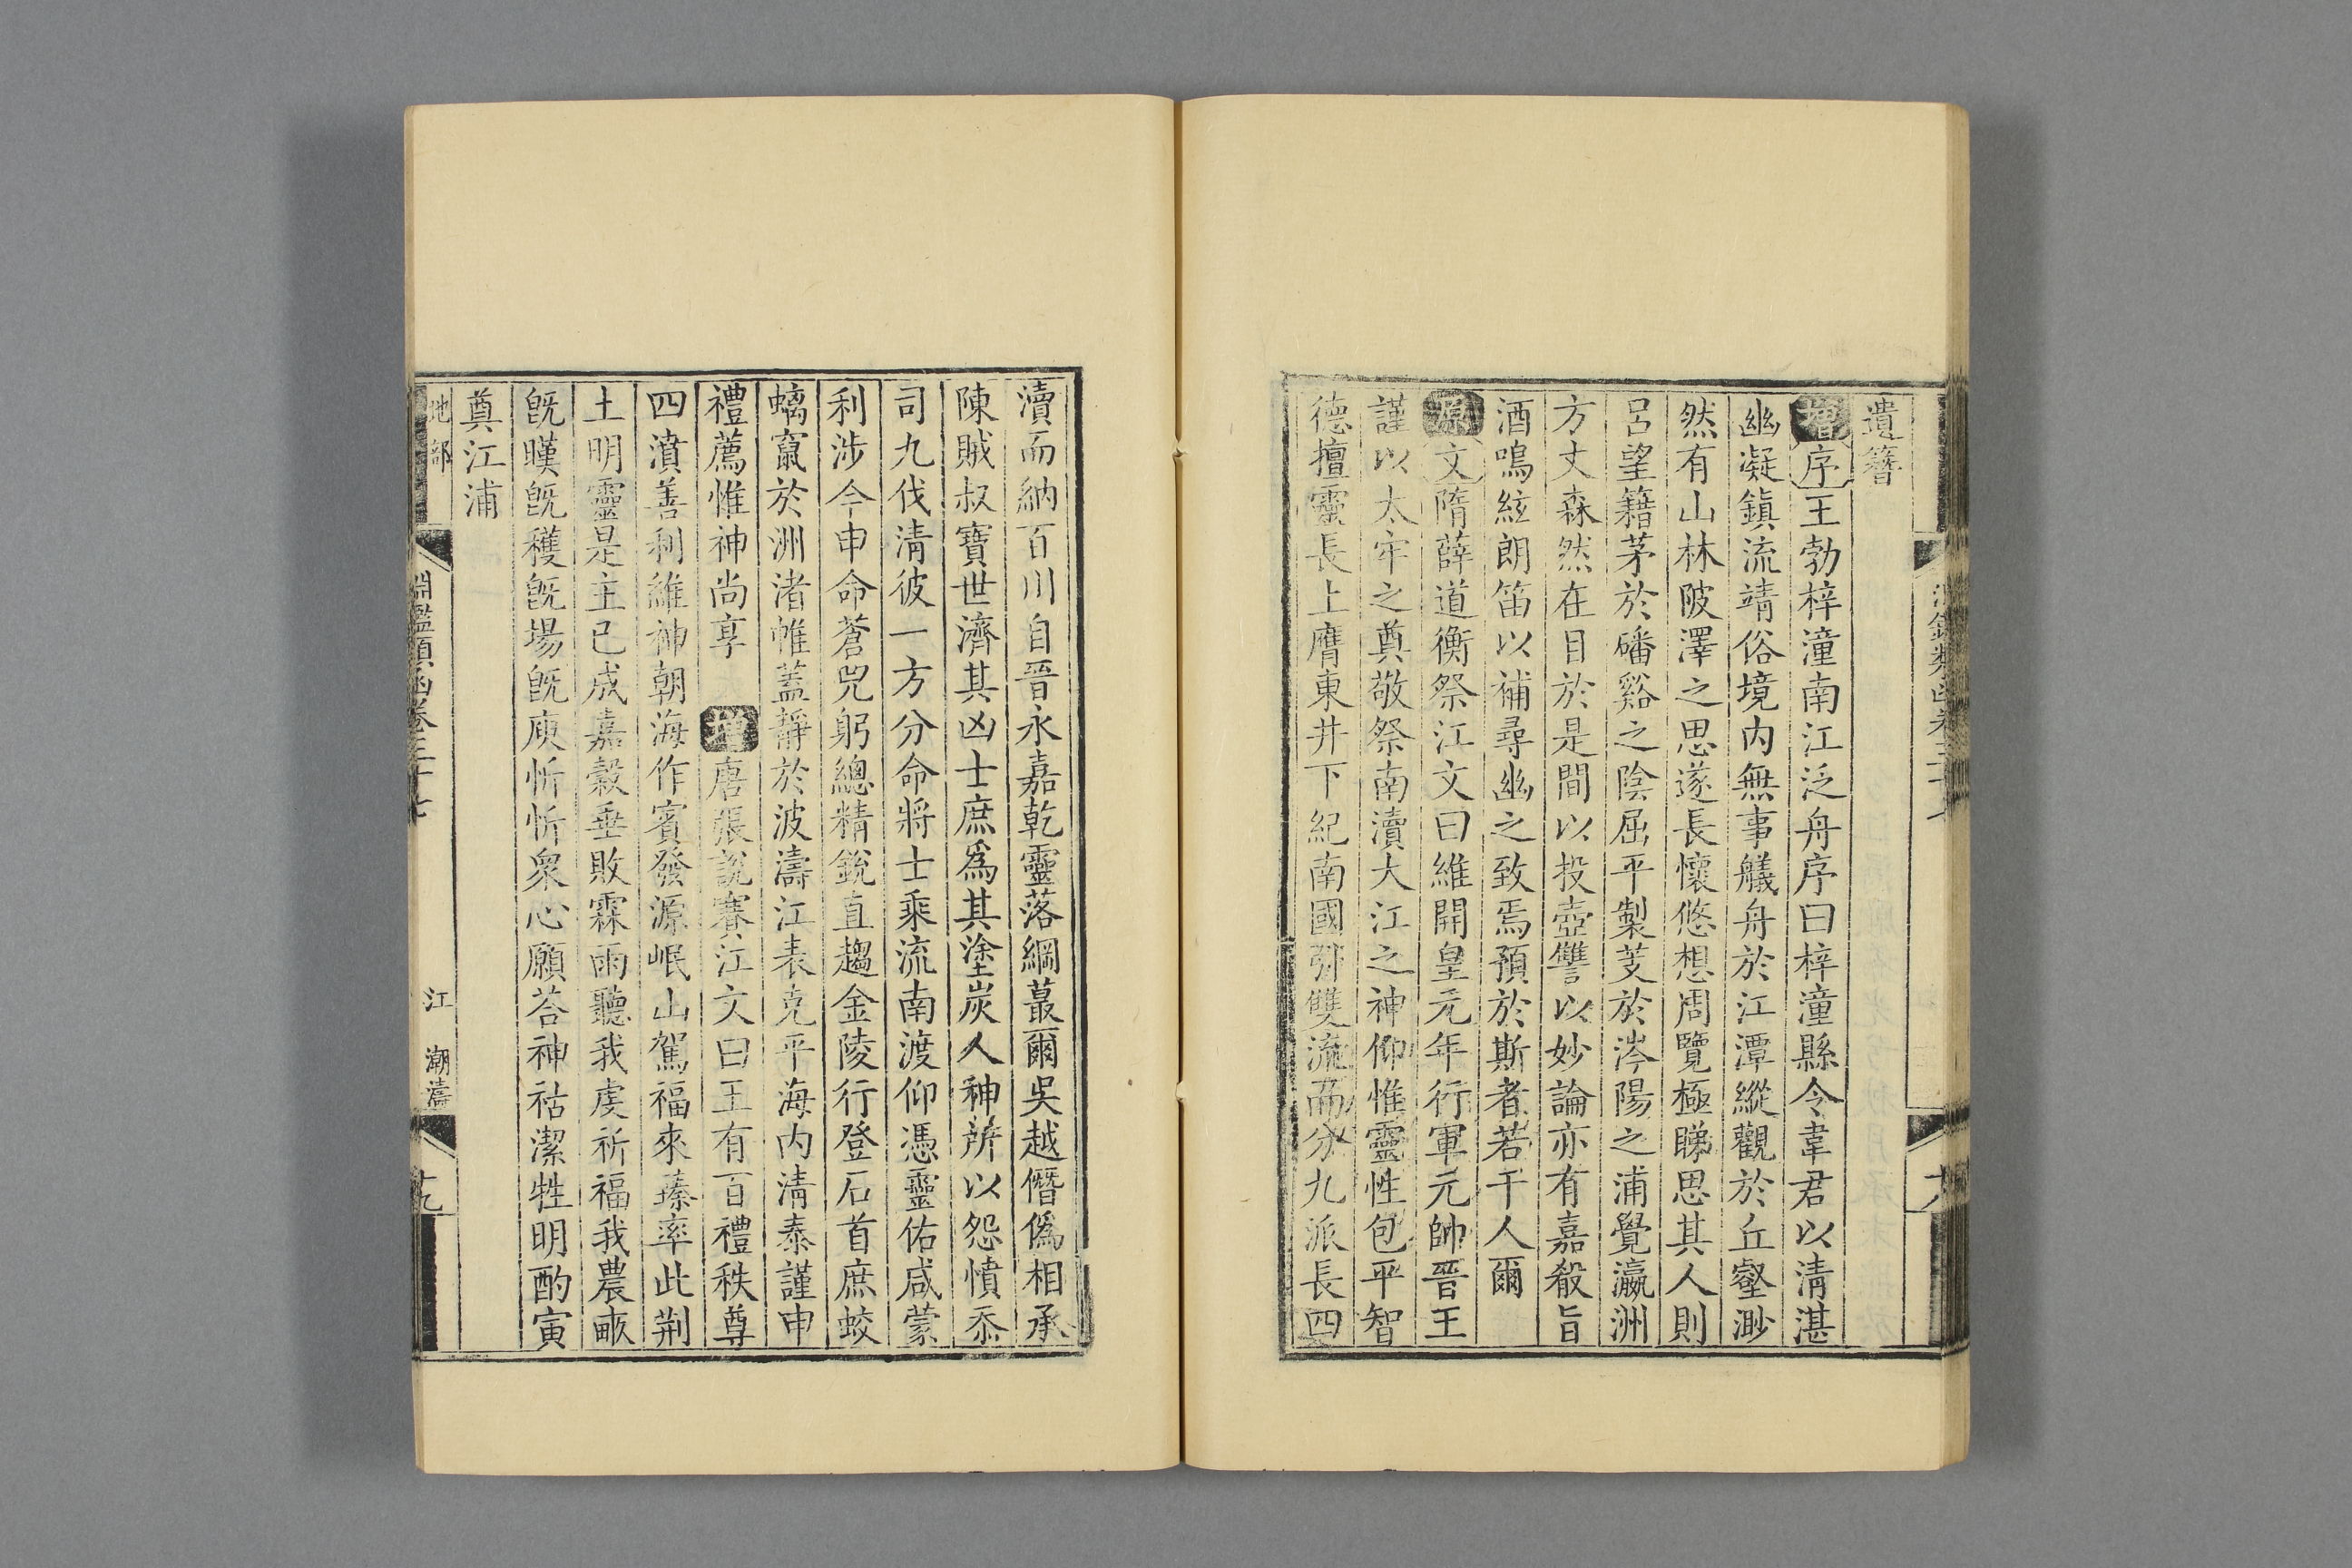 遺簪
增序王勃梓潼南江泛舟序曰梓潼縣令韋君以清湛
幽凝鎮流靖俗境内無事艤舟於江潭縱觀於丘壑渺
然有山林陂澤之思遂長懷悠想周覽極睇思其人則
呂望籍茅於磻谿之陰屈平製芰於涔陽之浦覺瀛洲
方丈森然在目於是間以投壺讐以妙論亦有嘉殽旨
酒鳴絃朗笛以補尋幽之致焉預於斯者若干人爾
原文隋薛道衡祭江文曰維開皇元年行軍元帥晉王
謹以太牢之奠敬祭南瀆大江之神仰惟靈性包平智
德擅靈長上膺東井下紀南國彌雙流而分九派長四
瀆而納百川自晉永嘉乾靈落綱蕞爾吳越僭偽相承
陳賊叔寶世濟其凶士庶爲其塗炭人神所以怨憤忝
司九伐清彼一方分命將士乘流南渡仰憑靈佑咸蒙
利涉今申命蒼兕躬總精銳直趨金陵行登石首庶蛟
螭竄於洲渚帷蓋靜於波濤江表克平海内清泰謹申
禮薦惟神尚享 增唐張說賽江文曰王有百禮秩尊
四瀆善利維神朝海作賓發源岷山駕福來臻率此荆
土明靈是主已成嘉穀垂敗霖雨聽我虔祈福我農畞
旣暵旣穫旣場旣庾忻忻衆心願荅神祜潔牲明酌寅
奠江浦
地部
淵鑑類函卷三十七
江 潮濤
十九